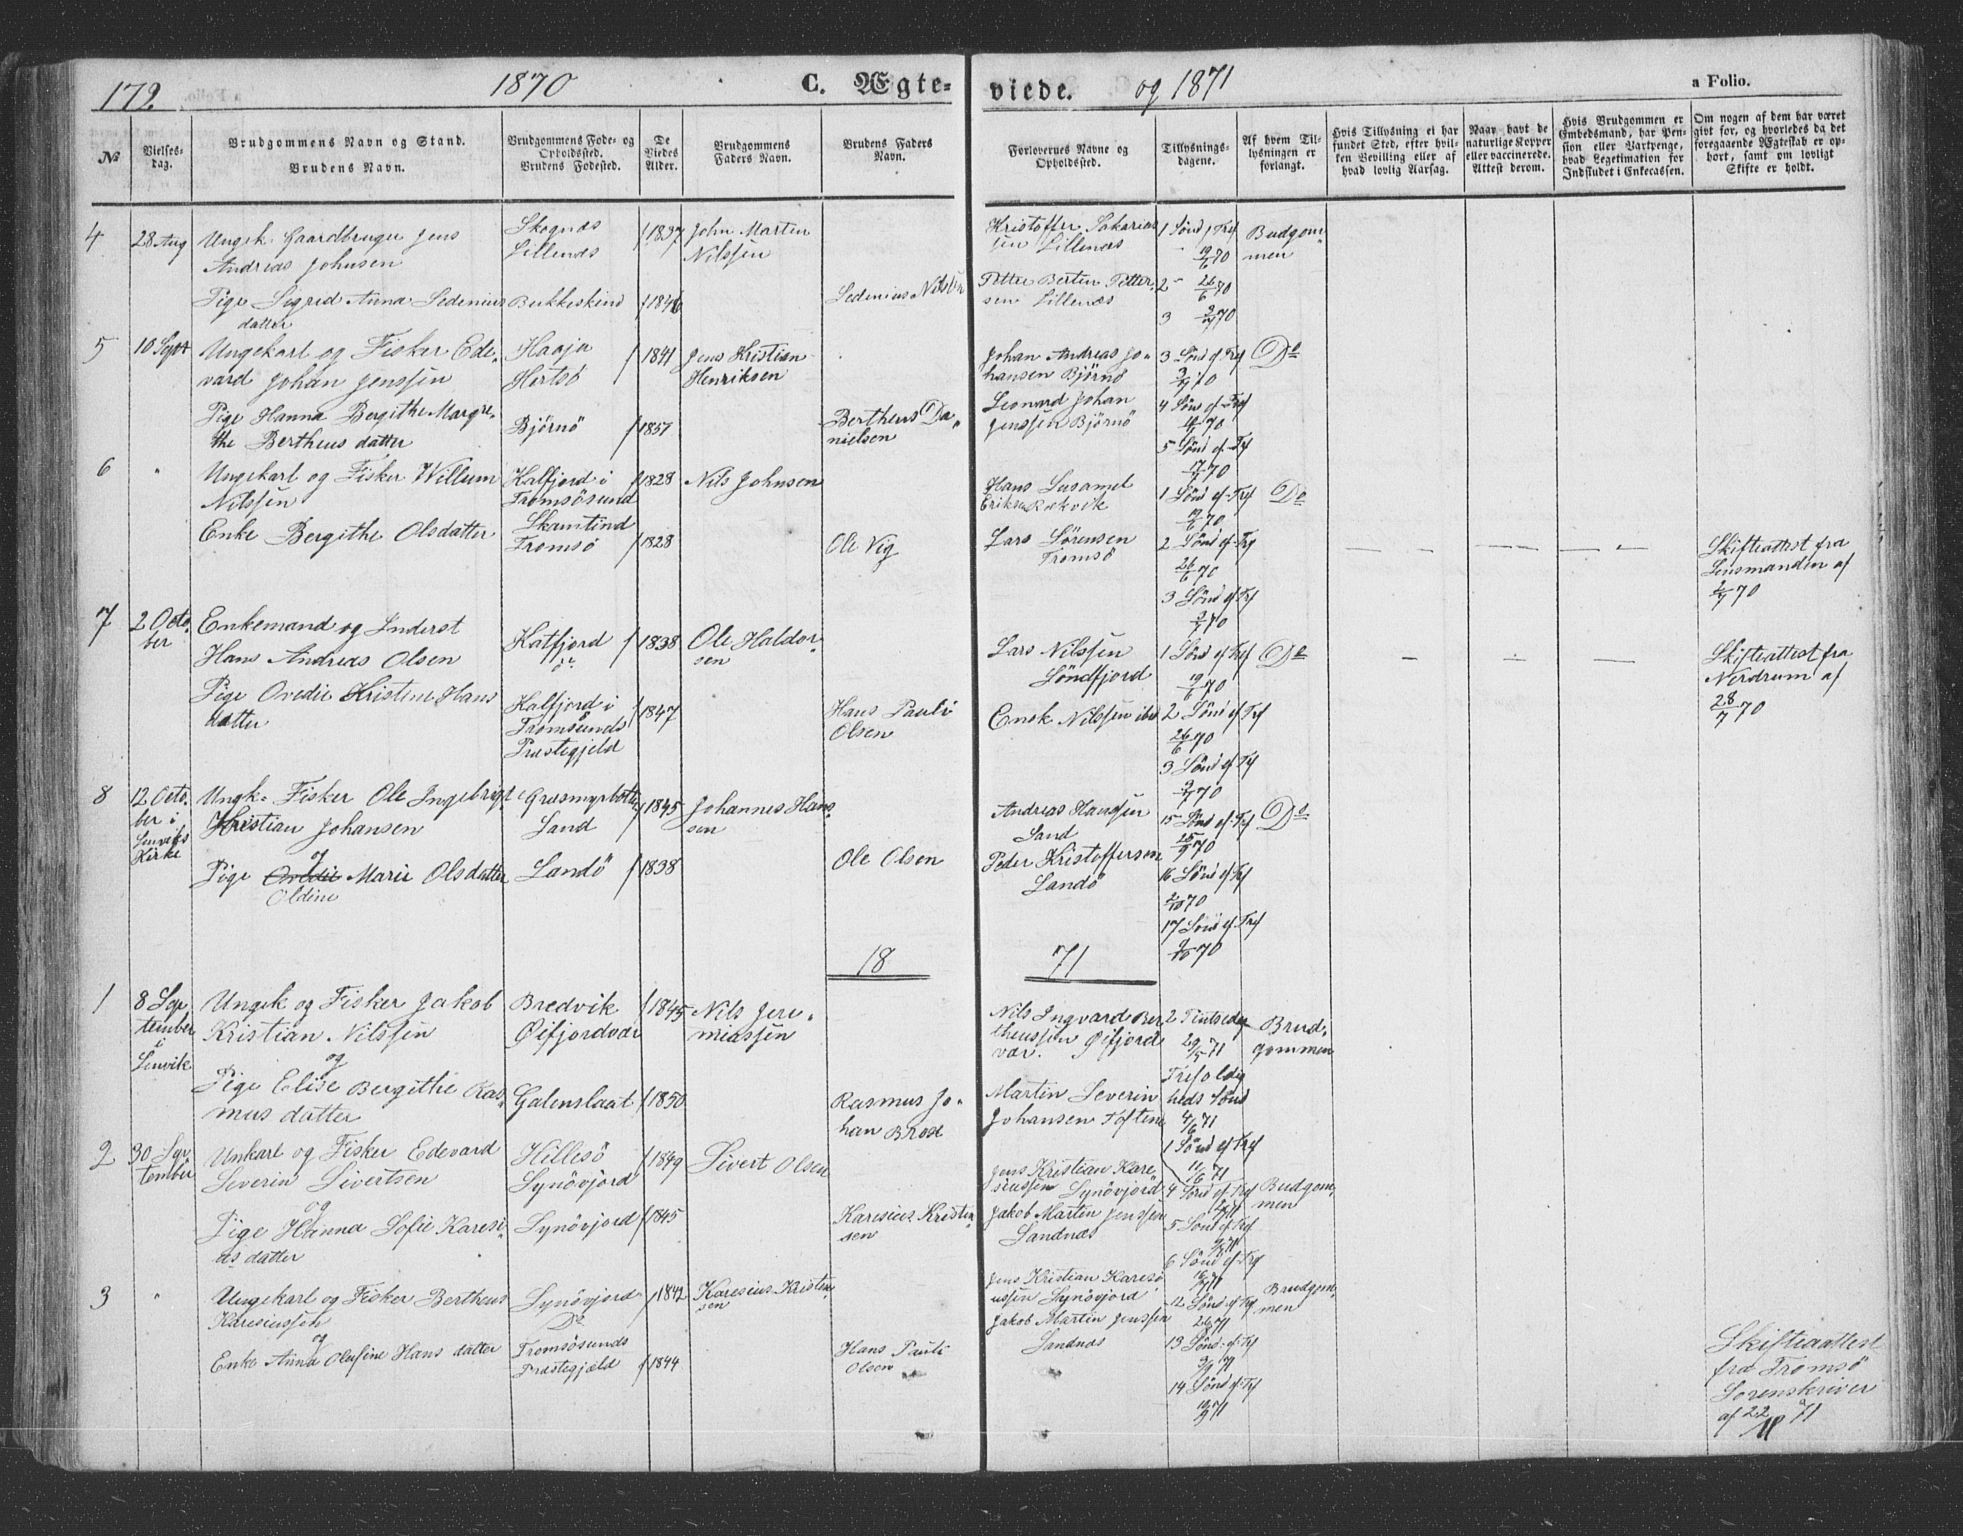 172.
1870
C. Ægte-
viede.
og 1871
a Folio.
№
Vielses-
dag.
Brudgommens Navn og Stand.
Brudens Navn.
Brudgommens Føde- og
Opholdssted.
Brudens Fødested.
De
Viedes
Alder.
Brudgommens
Faders Navn.
Brudens Faders
Navn.
Forlovernes Navne og
Opholdssted.
Tillysnings-
dagene.
Af hvem Til-
lysningen er
forlangt.
Hvis Tillysning ei har
fundet Sted, efter hvil-
ken Bevilling eller af
hvad lovlig Aarsag.
Naar havt de
naturlige Kopper
eller vaccinerede.
Attest derom.
Hvis Brudgommen er
Embedsmand, har Pen-
sion eller Vartpenge,
hvad Legitimation for
Indskudet i Enkecassen.
Om nogen af dem har været
gift før, og hvorledes da det
foregaaende Ægteskab er op-
hørt, samt om lovligt
Skifte er holdt.
4
28 Aug
Ungk. Gaardbruger Jens
Andreas Johnsen
Skognæs
Lillenæs
1837
John Martin
Nilssen
Kristoffer Sakarias
sen Lillenæs
1 Sønd f Tref
19/6 70
Budgom-
men
Pige Sigrid Anna Sedenius
datter
Bukkeskind
1846
Sedenius Nilsen
Petter Bertin Petter-
sen Lillenæs
2 " 26/6 70
3 3/7 70
5
10 Sept
Ungekarl og Fisker Ede-
vard Johan Jenssen
Haaja
Hertsø
1841
Jens Kristian
Henriksen
Johan Andreas Jo-
hansen Bjørnø
3 Sønd ef Tref
3/7 70
Do
Pige Hanna Bergithe Margre-
the Bertheus datter
Bjørnö
1851
Bertheus Da-
nielsen
Leonard Johan
Jenssen Bjørnö
4 Sønd ef Tref
70
5 Sønd ef Tref
17/7 70
6
"
Ungekarl og Fisker Willum
Nilssen
Kalfjord i
Tromsösund
1828
Nils Johnsen
Hans Susamel
Eriksen Rækvik
1 Sønd ef Tref
19/6 70
Do
Enke Bergithe Olsdatter
Skamtind
Tromsö
1828
Ole Vig
Lars Sörensen
Tromsö
2 Sönd ef Trf
26/6 70
3 Sönd ef Trf
3/7 70
Skifteattest fra
Lensmanden af
2/7 70
7
2 Octo-
ber
Enkemand og Inderst
Hans Andreas Olsen
Katfjord
1838
Ole Haldor-
sen
Lars Nilssen
Söndfjord
1 Sönd ef Tref
19/6 70
Do
Skifteattest fra
Nerdrum af
28/7 70
Pige Ovedie Kristine Hans
datter
Kalfjord i
Tromsösunds
Præstegjeld
1847
Hans Pauli
Olsen
Enok Nilssen ibd
2 Sönd ef Trf
26/6 70
3 Sönd ef Trf
3/7 70
8
12 Octo-
ber i
Lenviks
Kirke
Ungk. Fisker Ole Ingebrigt
Kristian Johansen
og
Græsmyrbotten
Sand
1845
Johannes Hans-
sen
Andreas Hansen
Sand
15 Sönd ef Trf
25/9 70
Do
Pige Ovedie Marie Olsdatter
Oldine
Sandö
1838
Ole Olsen
Peder Kristoffersen
Sandö
16 Sönd ef Trf
2/10 70
17 Sönd ef Trf
9/10 70
18
71
1
8 Sep
tember
i
Lenvik
Ungk og Fisker Jakob
Kristian Nilssen
og
Bredvik
Øifjordvær
1845
Nils Jere-
miassen
Nils Ingvard Ber
theussen Øifjord
vær.
2 Pintsedag
29/5 71
Brud-
gommen
Pige Elise Bergithe Ras-
mus datter
Galenslaat
1850
Rasmus Jo-
han Brox
Martin Severin
Johansen Toftene
Trefoldig
heds Sönd
4/6 71
1 Sönd ef Trf
11/6 71
2
30 Sep-
tember
Unkarl og Fisker Edevard
Severin Sivertsen
og
Hillesö
Synövjord
1849
Sivert Olsen
Jens Kristian Kare-
siussen Synövjord
4 Sönd ef Trf
71
Budgom-
men
Pige Hanna Sofie Karesi-
us datter
Synövjord
1845
Karesius Kristen-
sen
Jakob Martin Jenssen
Sandnæs
5 Sönd ef Trf
71
6 Sönd ef Trf
16/7 71
3
"
Ungekarl og Fisker Bertheus
Karesiussen
og
Synövjord
Do
1842
Karesius Kristen-
sen
Jens Kristian Karesi-
ussen Synövjord
12 Sönd ef Trf
71
Brudgom-
men
Enke Anna Olufine Hans datter
Tromsösunds
Præstegjæld
1844
Hans Pauli
Olsen
Jakob Martin Jenssen
Sandnæs
13 Sönd ef Trf
3/9 71
14 Sönd ef Trf
10/9 71
Skifteattest
fra Tromsö
Sorenskriver
af 22/ 71